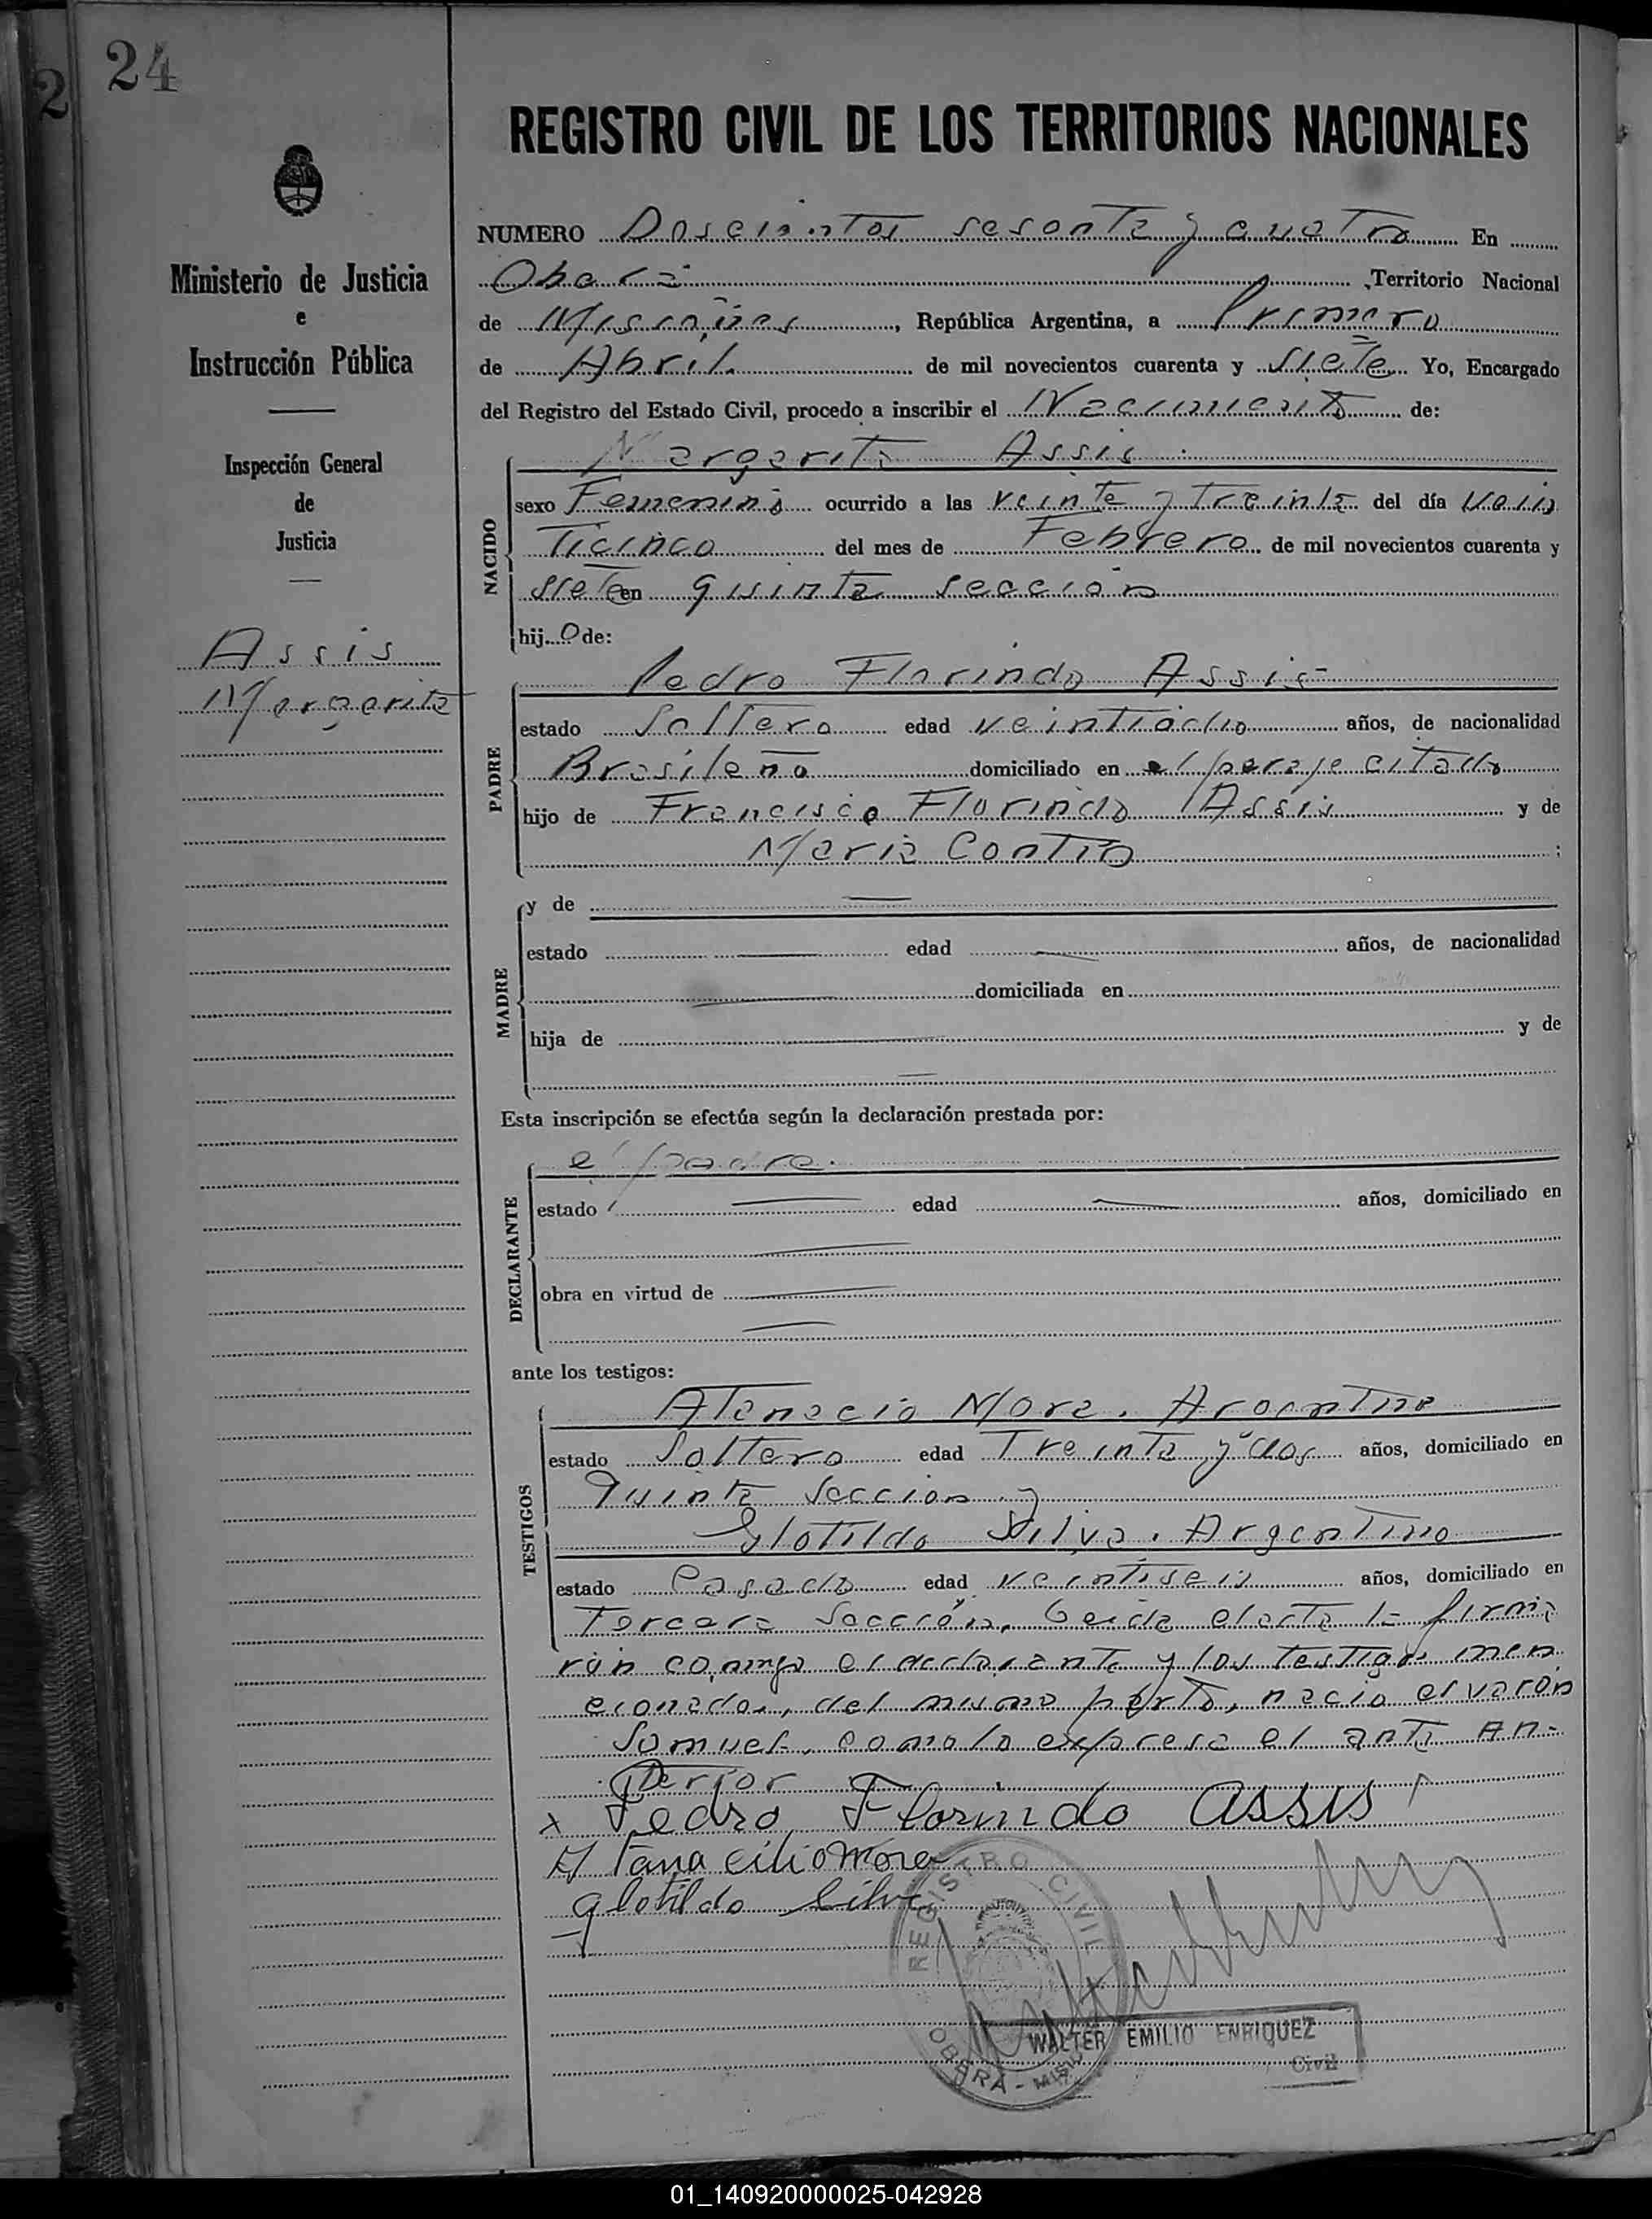 24
2
REGISTRO CIVIL DE LOS TERRITORIOS NACIONALES
Ministerio de Justicia
e
Instrucción Pública
Inspección General
de
Justicia
Assis
Margarita
NUMERO Doscientos sesenta y cuatro En
Oberá Territorio Nacional
de Misiones, República Argentina, a Primero
de Abril de mil novecientos cuarenta y siete Yo, Encargado
del Registro del Estado Civil, procedo a inscribir el Nacimiento de:
NACIDO
Margarita Assis
sexo Femenino ocurrido a las veinte y treinta del día vein
ticinco del mes de Febrero de mil novecientos cuarenta y
siete en quinta sección
hijo de:
PADRE
Pedro Florindo Assis
estado Soltero edad veintiocho años, de nacionalidad
Brasileño domiciliado en el paraje citado
hijo de Francisco Florindo Assis y de
Maria Contro ;
MADRE
y de
estado edad años, de nacionalidad
domiciliada en
hija de y de
Esta inscripción se efectúa según la declaración prestada por:
DECLARANTE
el padre.
estado edad años, domiciliado en
obra en virtud de
ante los testigos:
TESTIGOS
Atanacio Mora. Argentino
estado Soltero edad Treinta y dos años, domiciliado en
Quinta Seccion y
Glotildo Silva. Argentino
estado Casado edad veintiseis años, domiciliado en
Tercera Sección. Leida el acta la firma
ron conmigo el declarante y los testigos men
cionados, del mismo parto, nacio el varón
Samuel, como lo expresa el acta An-
terior
x Pedro Florindo Assis
Atanacilio Mora
Glotildo Silva
REGISTRO CIVIL
OBERA - MIS
WALTER EMILIO ENRIQUEZ
Civil
01_140920000025-042928